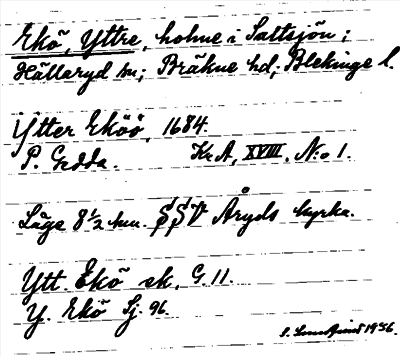 Ekö, Yttre, holme i Saltsjön i
Hällaryd sn; Bräkne hd; Blekinge l.
Ytter Eköö, 1684.
P. Gedda. Kr A, XVIII, N:o 1.
Läge 8 1/2 km. SSV Åryds kyrka.
Ytt. Ekö sk, G. 11.
Y. Ekö Sj. 96.
S. Lundqvist 1936.